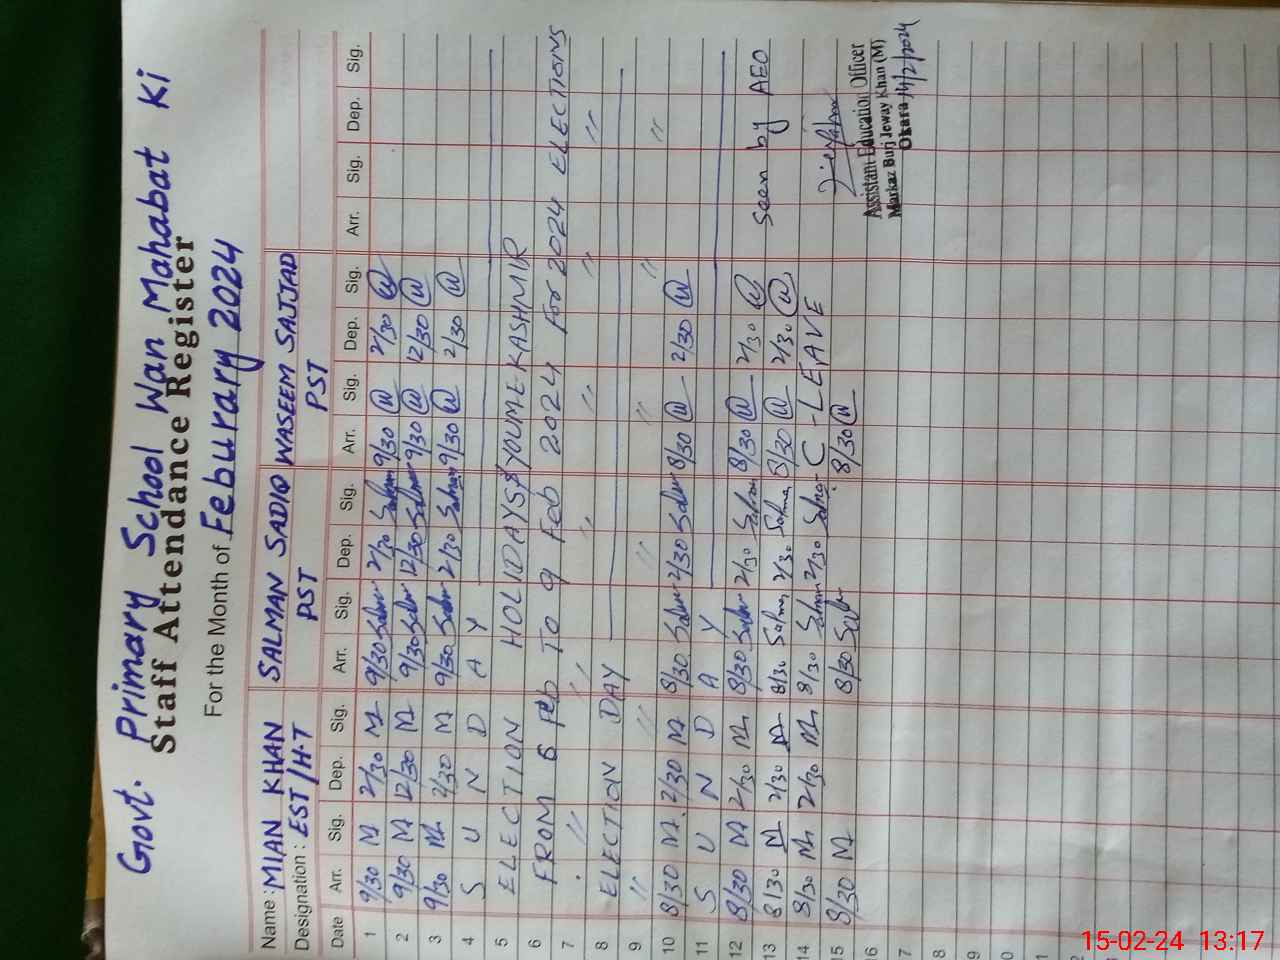 Govt. Primary School Wan Mahabat Ki
Staff Attendance Register
For the Month of Feburary 2024
Name : MIAN KHAN SALMAN SADIQ WASEEM SAJJAD
Designation : EST/H.T PST PST
Date Arr. Sig. Dep. Sig. Arr. Sig. Dep. Sig. Arr. Sig. Dep. Sig. Arr. Sig. Dep. Sig.
1 9/30 M 2/30 M 9/30 Salman 2/30 Salman 9/30 W 2/30 W
2 9/30 M 12/30 M 9/30 Salman 12/30 Salman 9/30 W 12/30 W
3 9/30 M 2/30 M 9/30 Salman 2/30 Salman 9/30 W 2/30 W
4 S U N D A Y
5 ELECTION HOLIDAYS & YOUME KASHMIR
6 FROM 6 Feb To 9 Feb 2024 For 2024 ELECTIONS
7 " " " " " "
8 ELECTION DAY
9 " " " " " "
10 8/30 M 2/30 M 8/30 Salman 2/30 Salman 8/30 W 2/30 W
11 S U N D A Y
12 8/30 M 2/30 M 8/30 Salman 2/30 Salman 8/30 W 2/30 W Seen by AEO
13 8/30 M 2/30 M 8/30 Salman 2/30 Salman 8/30 W 2/30 W
14 8/30 M 2/30 M 8/30 Salman 2/30 Salman C-LEAVE
15 8/30 M 8/30 Salman 8/30 W
16 Assistant Education Officer
Markaz Burj Jeway Khan (M)
7 Okara 14/2/2024
8
9
0
1
2
15-02-24 13:17